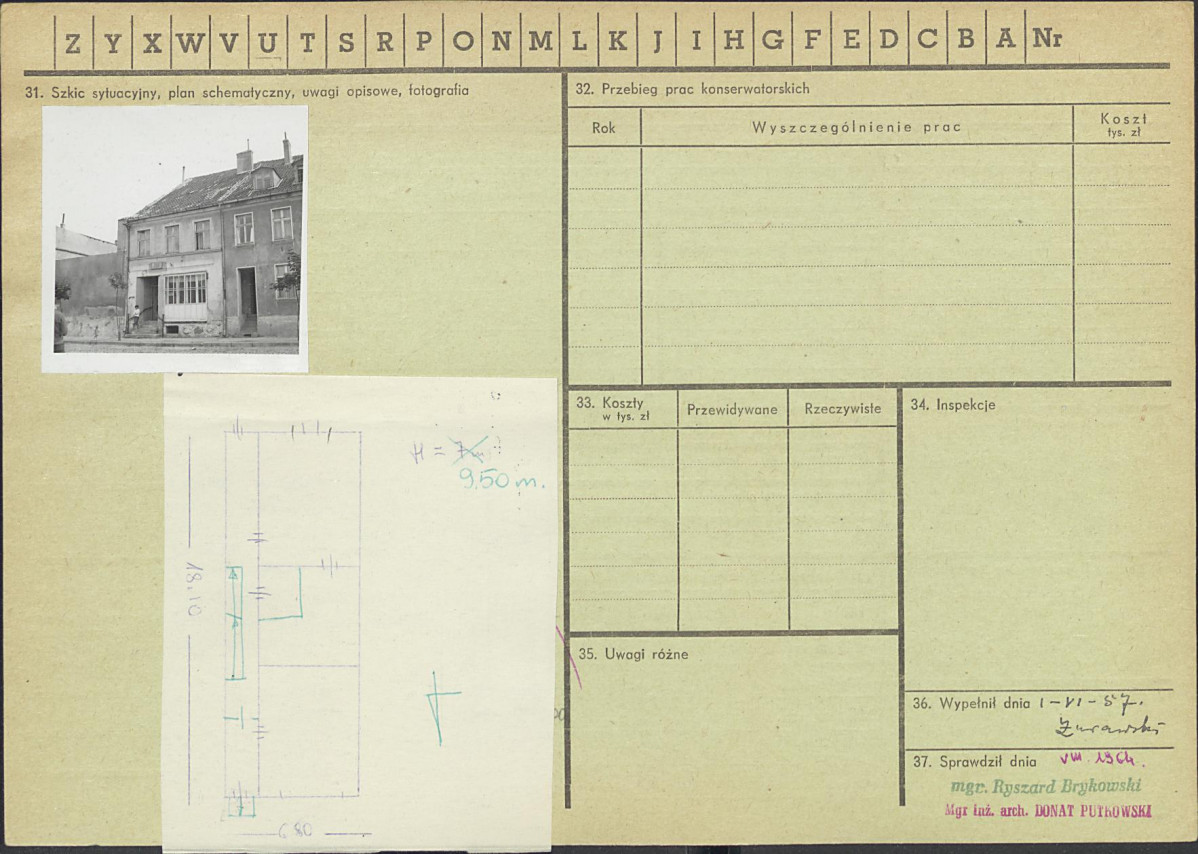 Z Y X W V U T S R P O N M L K J I H G F E D C B A Nr
31. Szkic sytuacyjny, plan schematyczny, uwagi opisowe, fotografia
32. Przebieg prac konserwatorskich
Rok
Wyszczególnienie prac
Koszt
tys. zł
H = 7m
9.50 m.
18.10
6.80
33. Koszty
w tys. zł
Przewidywane
Rzeczywiste
34. Inspekcje
35. Uwagi różne
36. Wypełnił dnia 1-VI-57.
Żurawski
37. Sprawdził dnia VIII. 1964.
mgr. Ryszard Brykowski
Mgr inż. arch. DONAT PUTKOWSKI